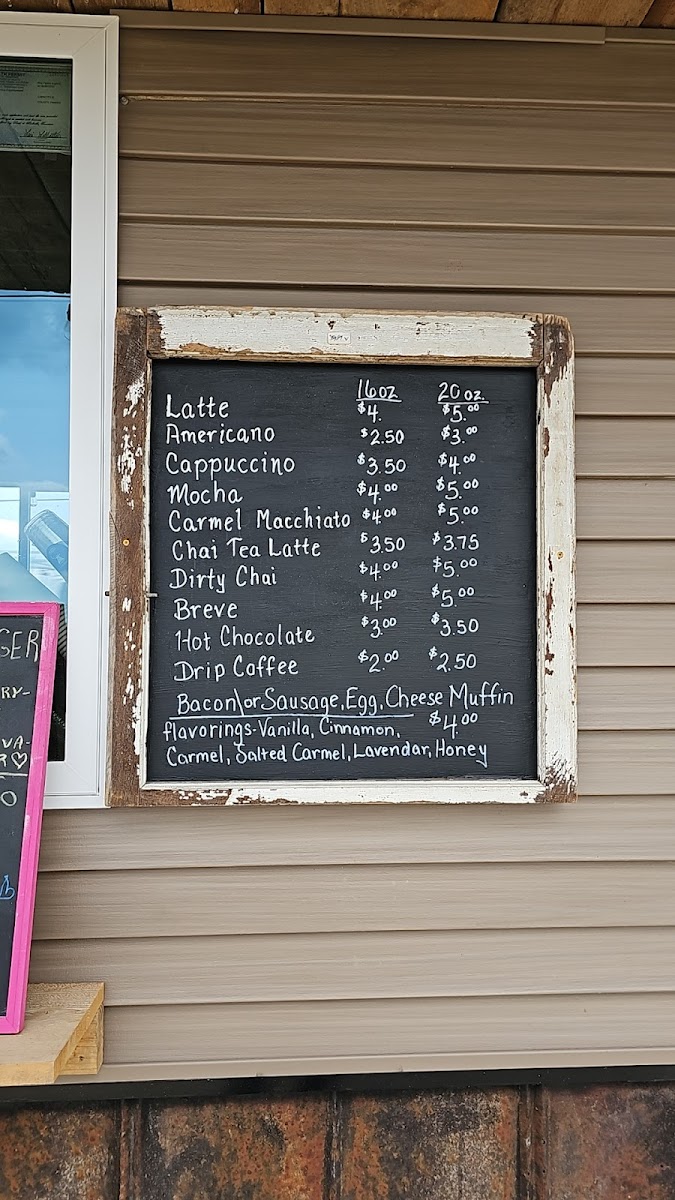 16oz 20 oz.
Latte $4. $5.00
Americano $2.50 $3.00
Cappuccino $3.50 $4.00
Mocha $4.00 $5.00
Carmel Macchiato $4.00 $5.00
Chai Tea Latte $3.50 $3.75
Dirty Chai $4.00 $5.00
Breve $4.00 $5.00
Hot Chocolate $3.00 $3.50
Drip Coffee $2.00 $2.50
Bacon\or Sausage, Egg, Cheese Muffin
$4.00
flavorings-Vanilla, Cinnamon,
Carmel, Salted Carmel, Lavendar, Honey
GER
RY-
VA-
R♡
O